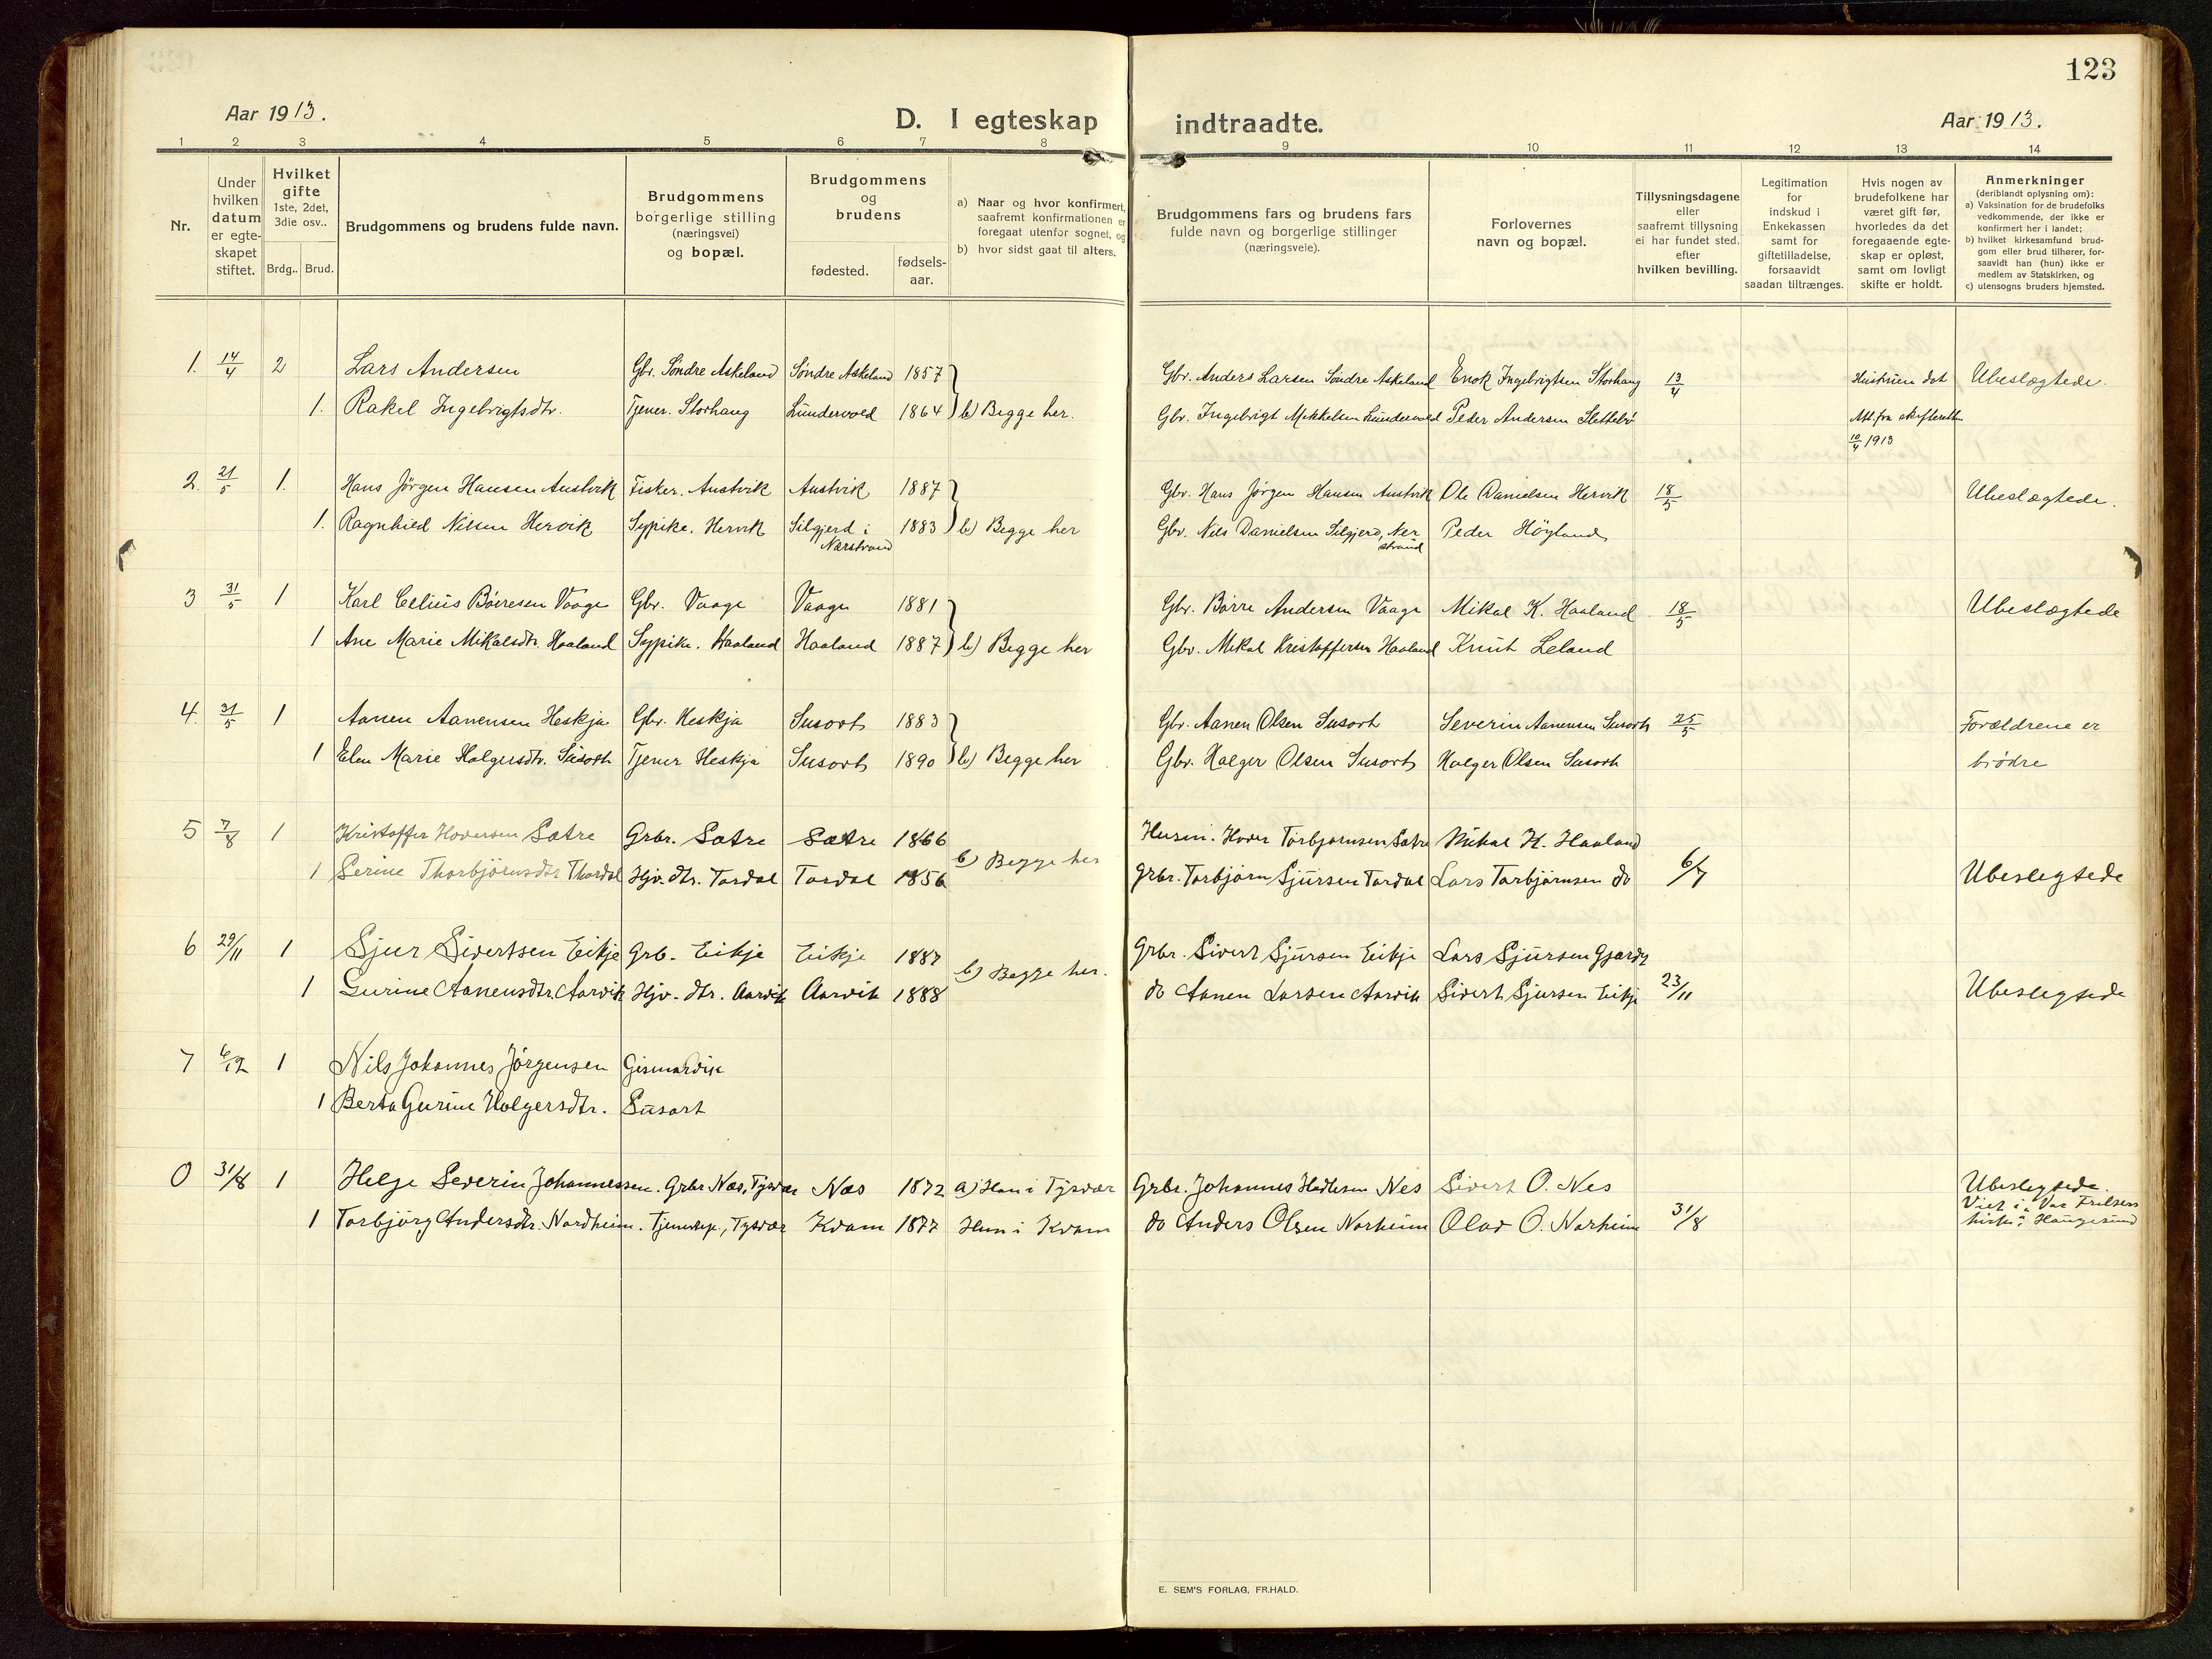 123
Aar 1913.
D. I egteskap indtraadte.
Aar 1913.
1 2 3 4 5 6 7 8 9 10 11 12 13 14
Nr.
Under hvilken datum er egteskapet stiftet.
Hvilket gifte 1ste, 2det, 3die osv..
Brdg.. Brud.
Brudgommens og brudens fulde navn.
Brudgommens borgerlige stilling (næringsvei) og bopæl.
Brudgommens og brudens
fødested.
fødsels-aar.
a) Naar og hvor konfirmert, saafremt konfirmationen er foregaat utenfor sognet, og
b) hvor sidst gaat til alters.
Brudgommens fars og brudens fars fulde navn og borgerlige stillinger (næringsveie).
Forlovernes navn og bopæl.
Tillysningsdagene eller saafremt tillysning ei har fundet sted, efter hvilken bevilling.
Legitimation for indskud i Enkekassen samt for giftetilladelse, forsaavidt saadan tiltrænges.
Hvis nogen av brudefolkene har været gift før, hvorledes da det foregaaende egteskap er opløst, samt om lovligt skifte er holdt.
Anmerkninger (deriblandt oplysning om):
a) Vaksination for de brudefolks vedkommende, der ikke er konfirmert her i landet;
b) hvilket kirkesamfund brudgom eller brud tilhører, forsaavidt han (hun) ikke er medlem av Statskirken, og
c) utensogns bruders hjemsted.
1. 14/4 2 Lars Andersen Gbr. Søndre Askeland Søndre Askeland 1857 Gbr. Anders Larsen Søndre Askeland Enok Ingebrigtsen Storhaug 13/4 Hustruen død Ubeslægtede.
1. Rakel Ingebrigtsdtr. Tjener. Storhaug Lundevold 1864 b) Begge her. Gbr. Ingebrigt Mikkelsen Lundevold Peder Andersen Slettebø Att. fra skifteretten
10/4 1913
2. 21/5 1. Hans Jørgen Hansen Austvik Fisker. Austvik Austvik 1887 Gbr. Hans Jørgen Hansen Austvik Ole Danielsen Hervik 18/5 Ubeslægtede.
1. Ragnhild Nilsen Hervik Sypike. Hervik Silgjerd i Nærstrand 1883 b) Begge her Gbr. Nils Danielsen Silgjerd, Nerstrand Peder Høyland
3 31/5 1 Karl Celius Børresen Vaage Gbr. Vaage Vaage 1881 Gbr. Børre Andersen Vaage Mikal K. Haaland 18/5 Ubeslægtede
1 Ane Marie Mikalsdtr. Haaland Sypike. Haaland Haaland 1887 b) Begge her Gbr. Mikal Kristoffersen Haaland Knut Leland
4. 31/5 1 Aanen Aanensen Heskja Gbr. Heskja Susort 1883 Gbr. Aanen Olsen Susort Severin Aanensen Susort 25/5 Forældrene er
1 Elen Marie Holgersdtr. Susort Tjener Heskja Susort 1890 b) Begge her Gbr. Holger Olsen Susort Holger Olsen Susort brødre
5 7/8 1 Kristoffer Hoversen Sætre Grbr. Sætre Sætre 1866 Husm. Hover Torbjørnsen Sætre Mikal K. Haaland
1 Serine Thorbjørnsdtr Thordal Hjv. dtr. Tordal Tordal 1856 b) Begge her Grbr. Torbjørn Sjursen Tordal Lars Torbjørnsen do 6/7 Ubeslegtede
6 29/11 1 Sjur Sivertsen Eikje Grb. Eikje Eikje 1887 Grbr. Sivert Sjursen Eikje Lars Sjursen
1 Gurine Aanensdtr Aarvik Hjv. dtr. Aarvik Aarvik 1888 b) Begge her. do Aanen Larsen Aarvik Sivert Sjursen Eikje 23/11 Ubeslegtede
7 6/12 1 Nils Johannes Jørgensen Gismarvik
1 Berta Gurine Holgersdtr. Susort
0 31/8 1 Helge Severin Johannessen. Grbr Næs, Tysvær Næs 1872 a) Han i Tysvær Grbr. Johannes Hedlesen Nes Sivert O. Nes Ubeslegtede.
1 Torbjørg Andersdtr. Nordheim. Tysvær Kvam 1877 Hun i Kvam do Anders Olsen Norheim Olav O. Norheim 31/8 Viet i Vor Frelsers kirke i Haugesund
E. SEM'S FORLAG, FR.HALD.